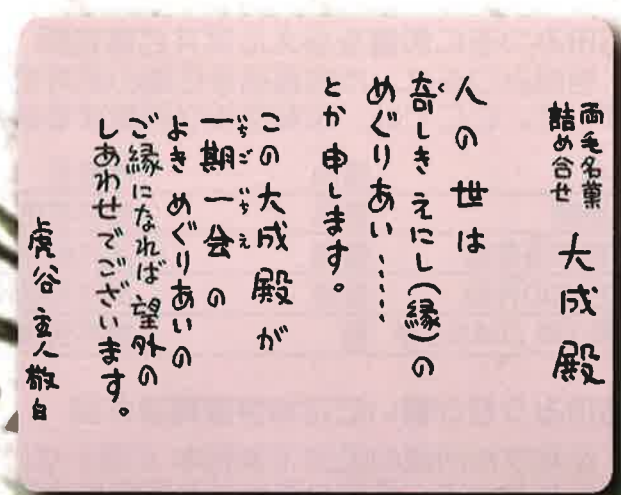 両毛名菓
詰め合せ
大成殿
人の世は
奇しきえにし(縁)の
めぐりあい……
とか申します。
この大成殿が
一期一会の
よきめぐりあいの
ご縁になれば望外の
しあわせでございます。
虎谷主人敬白